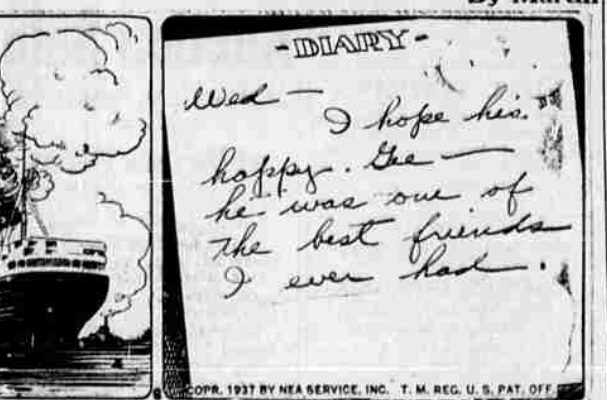 By Martin
-DIARY-
Wed —
I hope his
happy. Gee —
he was one of
the best friends
I ever had.
COPR. 1937 BY NEA SERVICE, INC. T. M. REG. U. S. PAT. OFF.